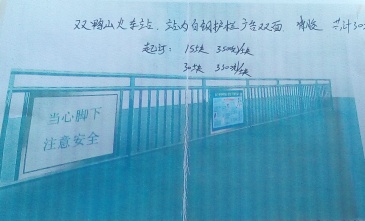 双鸭山火车站 站内白钢护栏广告双面 共计30
起订: 15块 350元/块
30块 330元/块
当心脚下
注意安全